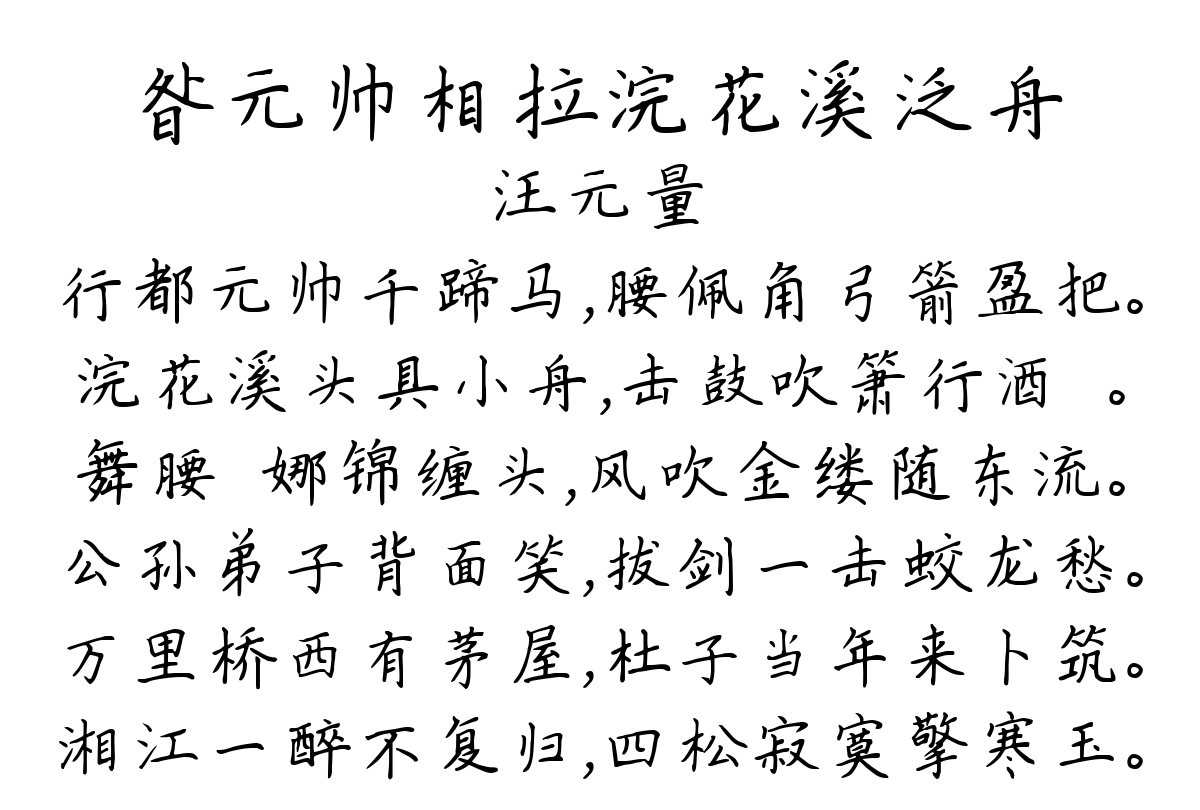 昝元帅相拉浣花溪泛舟
汪元量
行都元帅千蹄马,腰佩角弓箭盈把。
浣花溪头具小舟,击鼓吹箫行酒 。
舞腰 娜锦缠头,风吹金缕随东流。
公孙弟子背面笑,拔剑一击蛟龙愁。
万里桥西有茅屋,杜子当年来卜筑。
湘江一醉不复归,四松寂寞擎寒玉。